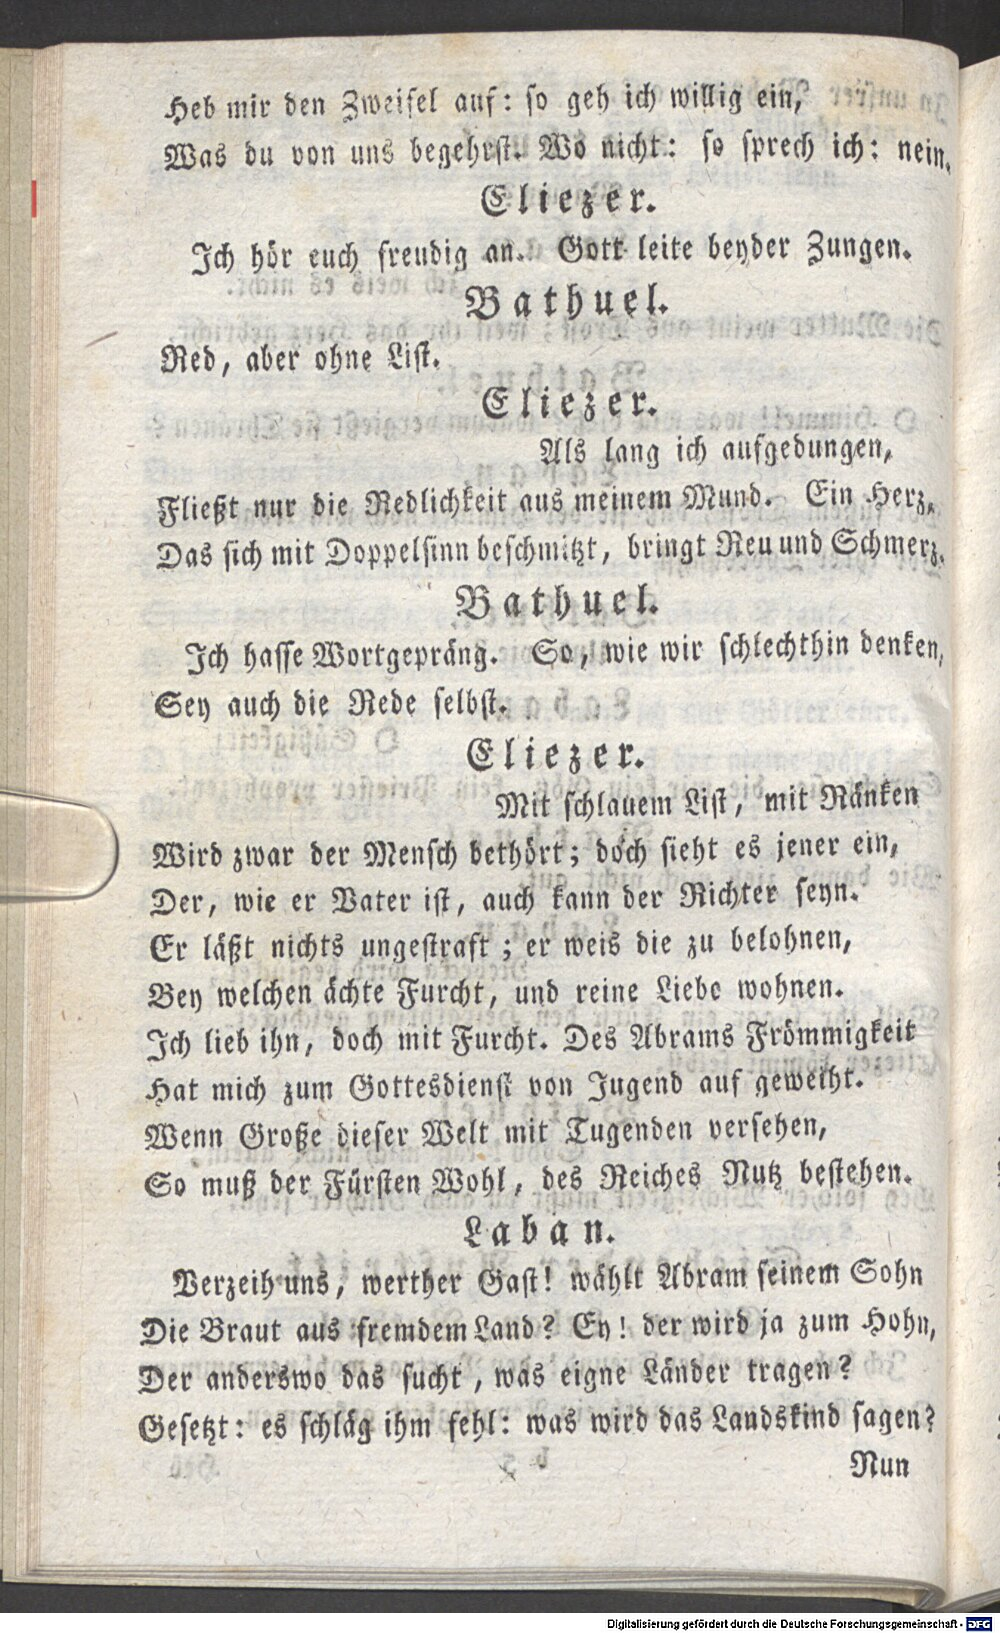 Heb mir den Zweifel auf: so geh ich willig ein,
Was du von uns begehrst. Wo nicht: so sprech ich: nein.
Eliezer.
Ich hör euch freudig an. Gott leite beyder Zungen.
Bathuel.
Red, aber ohne List.
Eliezer.
Als lang ich aufgedungen,
Fließt nur die Redlichkeit aus meinem Mund. Ein Herz,
Das sich mit Doppelsinn beschmitzt, bringt Reu und Schmerz.
Bathuel.
Ich hasse Wortgepräng. So, wie wir schlechthin denken,
Sey auch die Rede selbst.
Eliezer.
Mit schlauem List, mit Ränken
Wird zwar der Mensch bethört; doch sieht es jener ein,
Der, wie er Vater ist, auch kann der Richter seyn.
Er läßt nichts ungestraft; er weis die zu belohnen,
Bey welchen ächte Furcht, und reine Liebe wohnen.
Ich lieb ihn, doch mit Furcht. Des Abrams Frömmigkeit
Hat mich zum Gottesdienst von Jugend auf geweiht.
Wenn Große dieser Welt mit Tugenden versehen,
So muß der Fürsten Wohl, des Reiches Nutz bestehen.
Laban.
Verzeih uns, werther Gast! wählt Abram seinem Sohn
Die Braut aus fremdem Land? Ey! der wird ja zum Hohn,
Der anderswo das sucht, was eigne Länder tragen?
Gesetzt: es schläg ihm fehl: was wird das Landskind sagen?
Nun
Digitalisierung gefördert durch die Deutsche Forschungsgemeinschaft - DFG